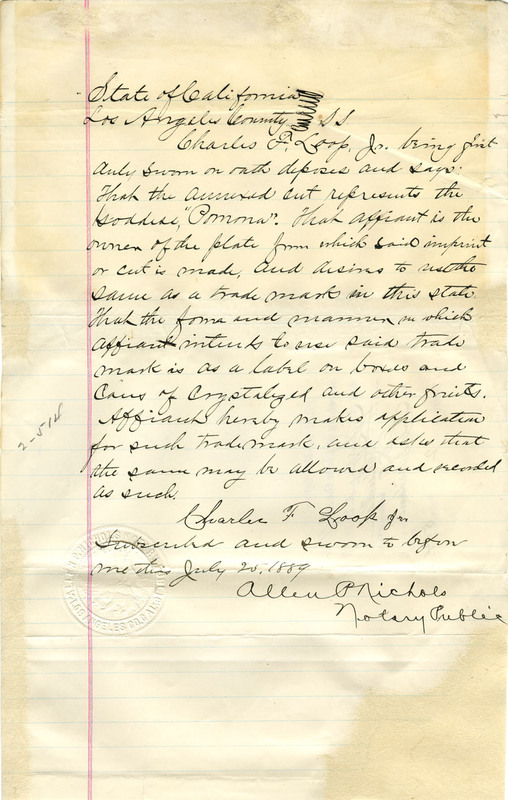 State of California
Los Angeles County SS
Charles F. Loop, Jr. being first
duly sworn on oath deposes and says:
That the annexed cut represents the
Goddess, "Pomona". That affiant is the
owner of the plate from which said imprint
or cut is made, and desires to use the
same as a trade mark in this state
That the form and manner in which
affiant intends to use said trade
mark is as a label on boxes and
Cans of Crystalized and other fruits.
Affiant hereby makes application
for such trade mark, and asks that
the same may be allowed and recorded
as such.
Charles F Loop Jr
Subscribed and sworn to before
me this July 20, 1889
Allen P Nichols
Notary Public
2-514